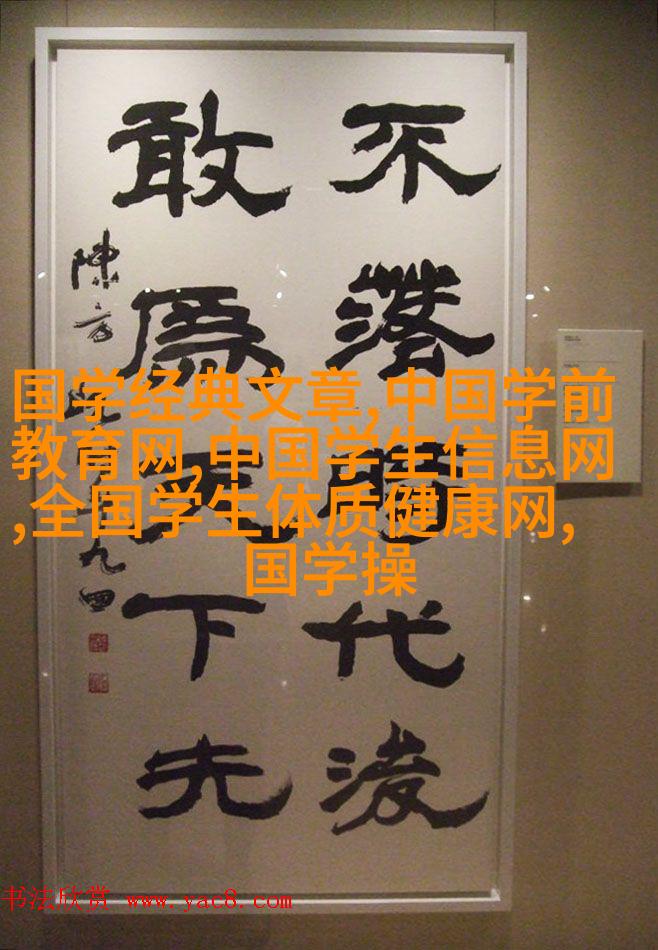 不落時代後
敢爲天下先
陳方既年九四
国学经典文章,中国学前
教育网,中国学生信息网
,全国学生体质健康网,
国学操
书法欣赏 www.yac8.com